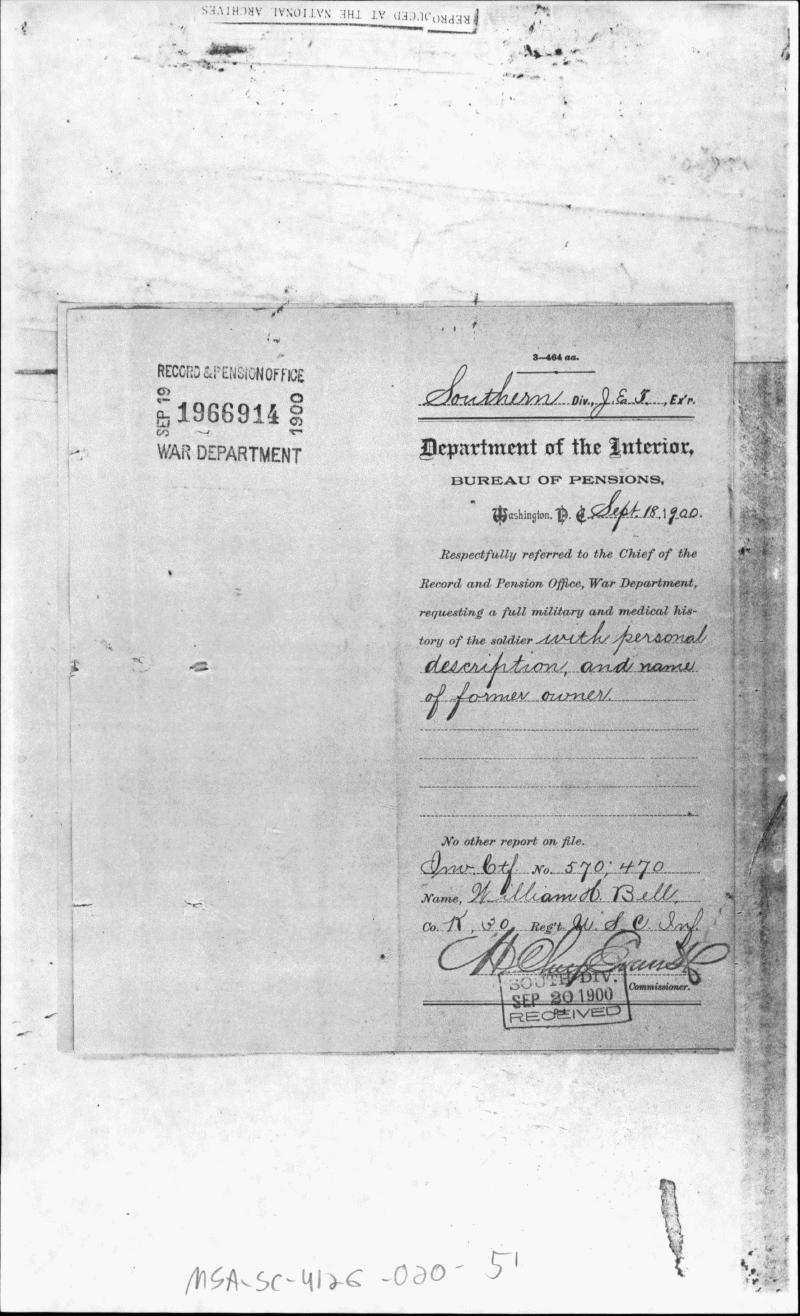 REPRODUCED AT THE NATIONAL ARCHIVES
RECORD & PENSION OFFICE
SEP 19 1966914 1900
WAR DEPARTMENT
3—464 aa.
Southern Div., J. E. T., Ex'r.
Department of the Interior,
BUREAU OF PENSIONS,
Washington, D. C., Sept. 18, 1900.
Respectfully referred to the Chief of the
Record and Pension Office, War Department,
requesting a full military and medical his-
tory of the soldier with personal
description, and name
of former owner.
No other report on file.
Inv. Ctf. No. 570,470
Name, William H. Bell,
Co. K, 30, Reg't U. S. C. Inf.
H Clay Evans
Commissioner.
SOUTH DIV.
SEP 20 1900
RECEIVED
MSA-SC-4126-020-51